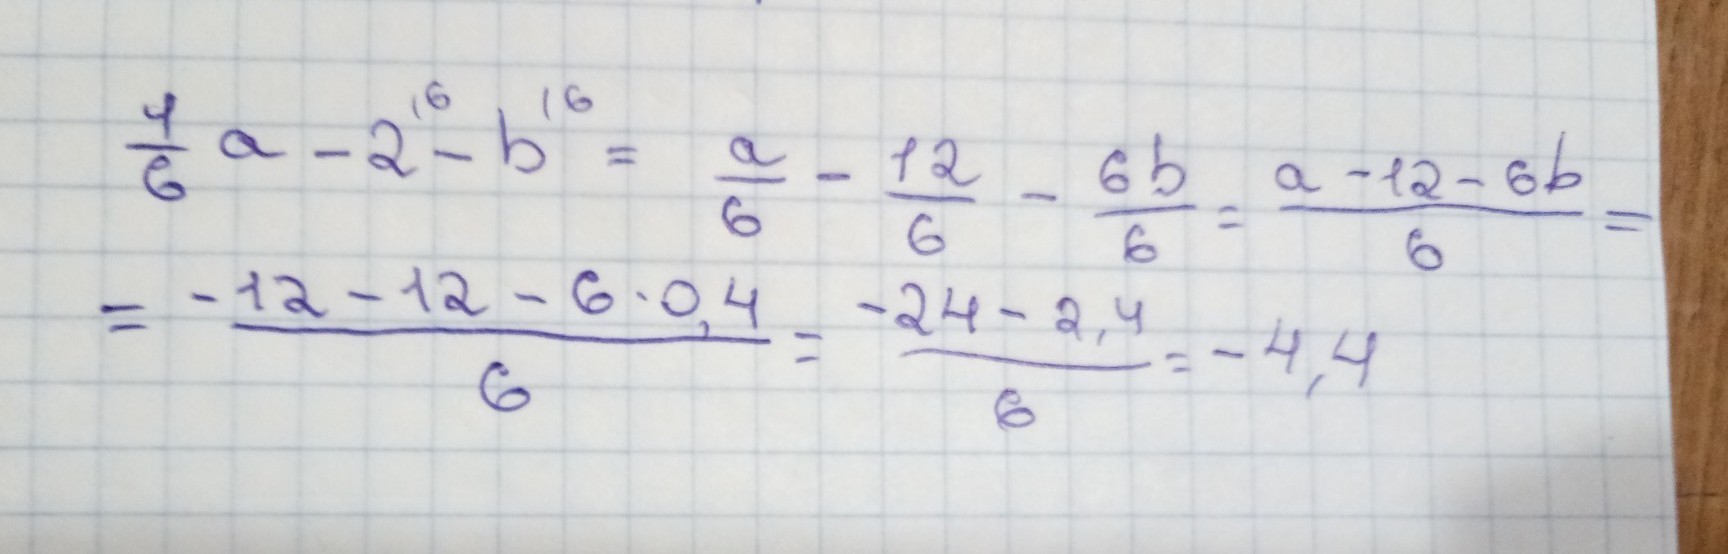 1/6 a - 2^{\6} - b^{\6} = a/6 - 12/6 - 6b/6 = (a - 12 - 6b)/6 =
= (-12 - 12 - 6 · 0,4)/6 = (-24 - 2,4)/6 = -4,4